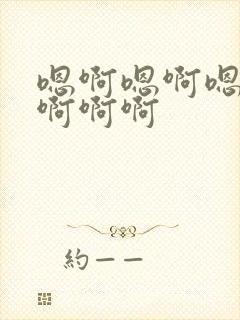 嗯啊嗯啊嗯
啊啊啊
約一一